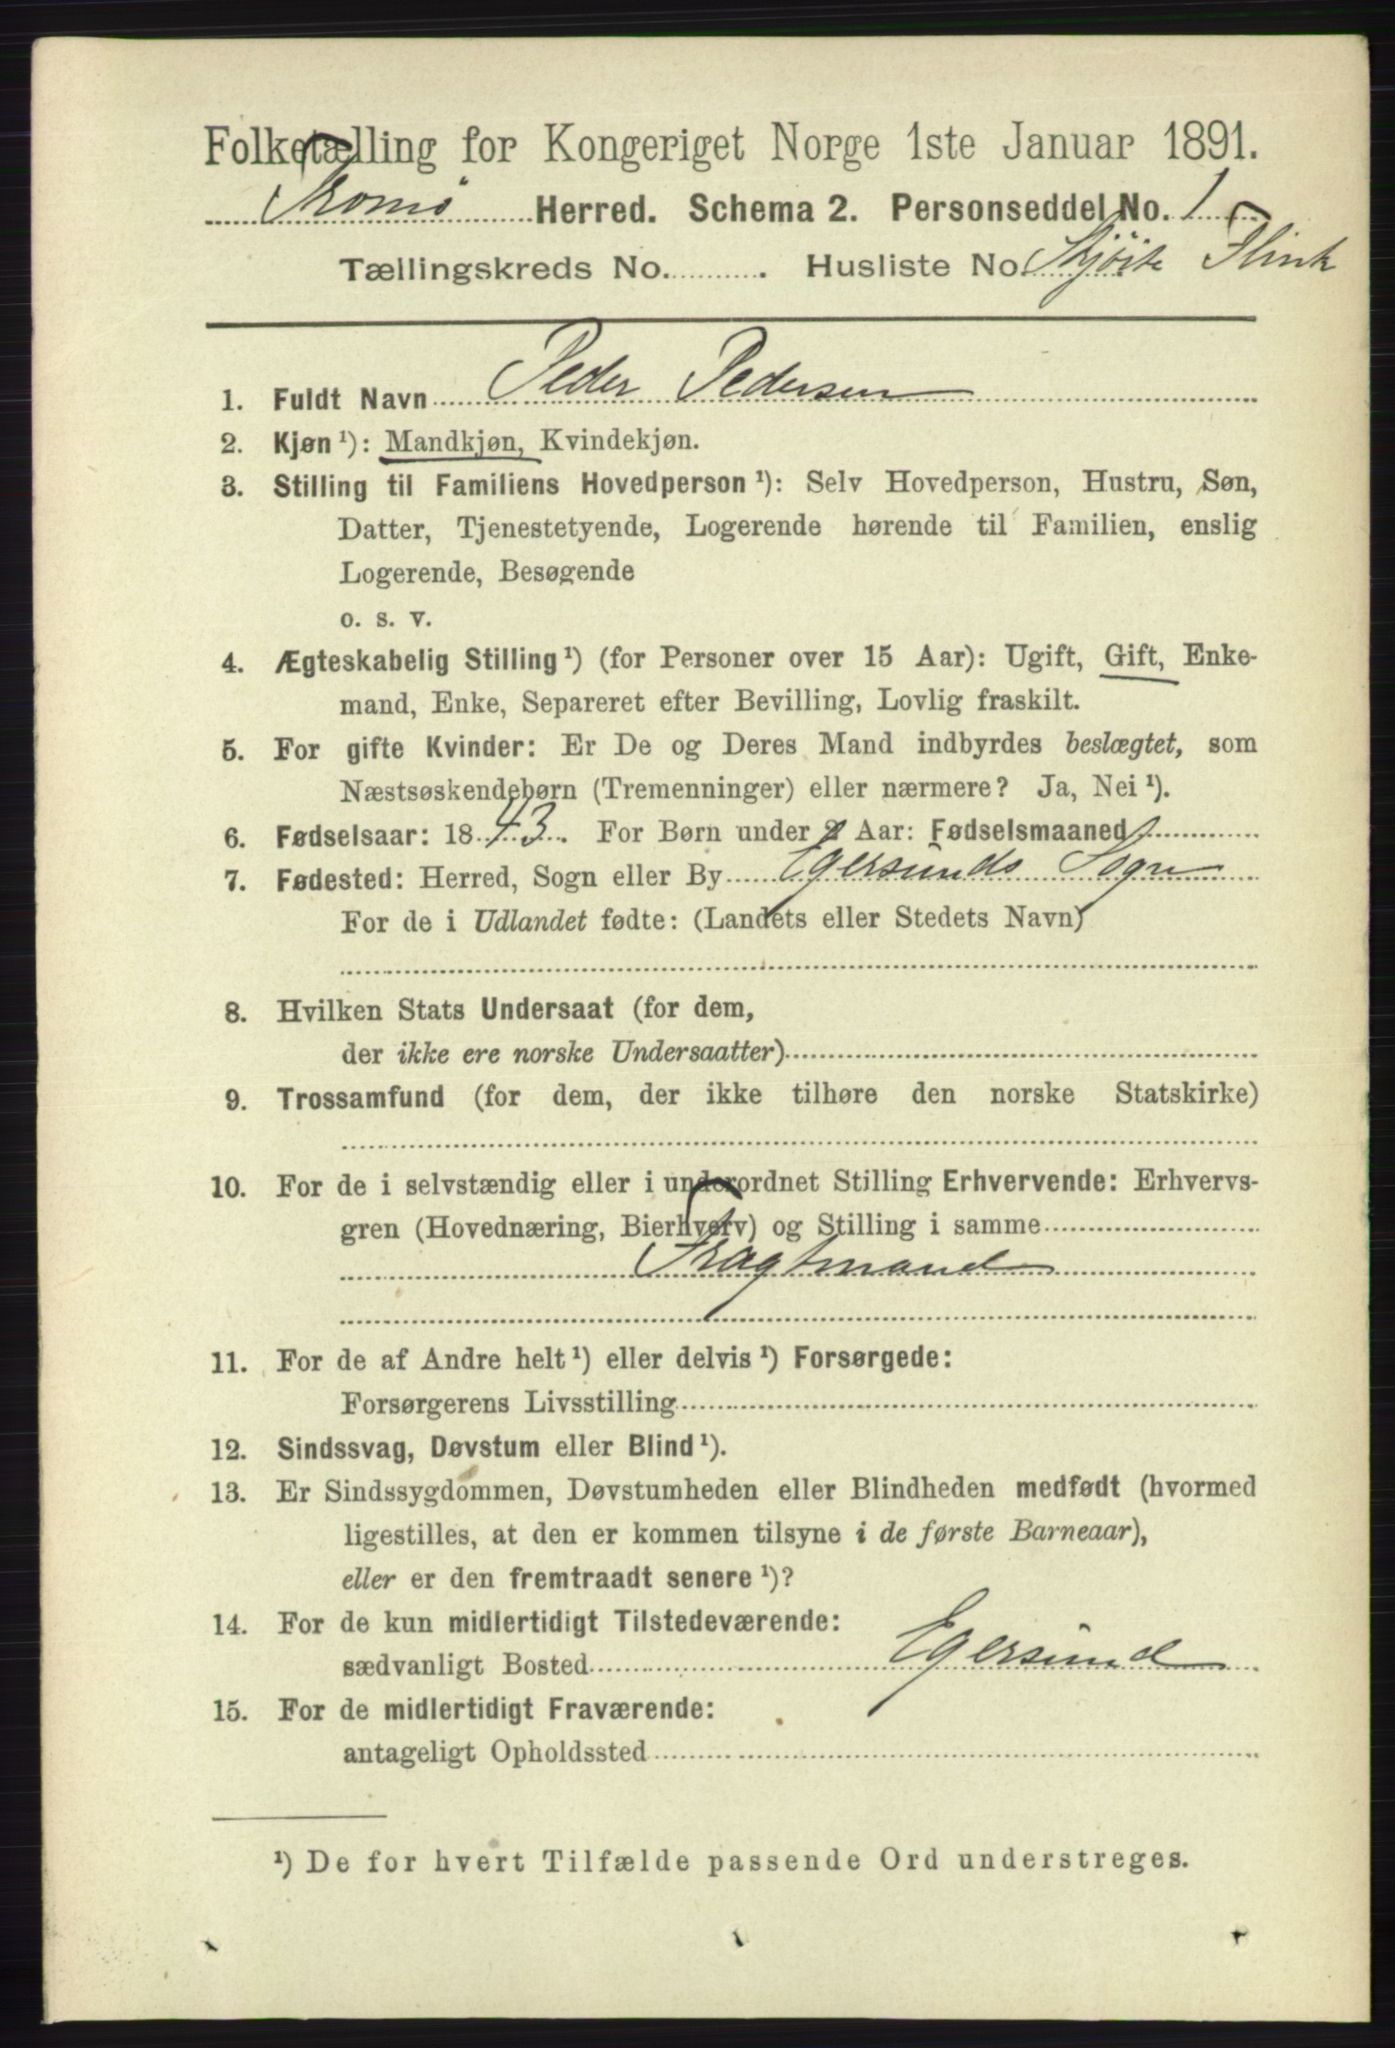 Folketælling for Kongeriget Norge 1ste Januar 1891.
Tromø Herred. Schema 2. Personseddel No. 1
Tællingskreds No. . Husliste No. Skjøite Flink
1. Fuldt Navn Peder Pedersen
2. Kjøn ¹): Mandkjøn, Kvindekjøn.
3. Stilling til Familiens Hovedperson ¹): Selv Hovedperson, Hustru, Søn,
Datter, Tjenestetyende, Logerende hørende til Familien, enslig
Logerende, Besøgende
o. s. v.
4. Ægteskabelig Stilling ¹) (for Personer over 15 Aar): Ugift, Gift, Enke-
mand, Enke, Separeret efter Bevilling, Lovlig fraskilt.
5. For gifte Kvinder: Er De og Deres Mand indbyrdes beslægtet, som
Næstsøskendebørn (Tremenninger) eller nærmere? Ja, Nei ¹).
6. Fødselsaar: 1843. For Børn under 2 Aar: Fødselsmaaned
7. Fødested: Herred, Sogn eller By Egersunds Sogn
For de i Udlandet fødte: (Landets eller Stedets Navn)
8. Hvilken Stats Undersaat (for dem,
der ikke ere norske Undersaatter)
9. Trossamfund (for dem, der ikke tilhøre den norske Statskirke)
10. For de i selvstændig eller i underordnet Stilling Erhvervende: Erhvervs-
gren (Hovednæring, Bierhverv) og Stilling i samme
Fragtmand
11. For de af Andre helt ¹) eller delvis ¹) Forsørgede:
Forsørgerens Livsstilling
12. Sindssvag, Døvstum eller Blind ¹).
13. Er Sindssygdommen, Døvstumheden eller Blindheden medfødt (hvormed
ligestilles, at den er kommen tilsyne i de første Barneaar),
eller er den fremtraadt senere ¹)?
14. For de kun midlertidigt Tilstedeværende:
sædvanligt Bosted Egersund
15. For de midlertidigt Fraværende:
antageligt Opholdssted
¹) De for hvert Tilfælde passende Ord understreges.